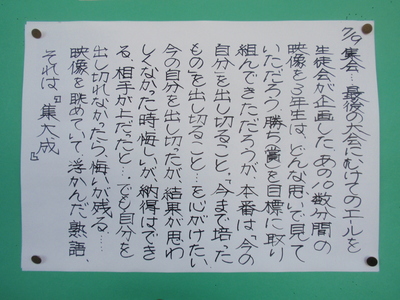 7/9 集会…最後の大会にむけてのエールを
生徒会が企画した。あの10数分間の
映像を3年生は、どんな思いで見て
いただろう。勝ち(賞)を目標に取り
組んできただろうが、本番は、「今の
自分」を出し切ること…「今まで培った
もの」を出し切ること…を心がけたい。
今の自分を出し切ったが、結果が思わ
しくなかった時、悔しいが、納得はでき
る、相手が上だったと…。でも、自分を
出し切れなかったら、悔いが残る…。
映像を眺めていて、浮かんだ熟語。
それは、『集大成』